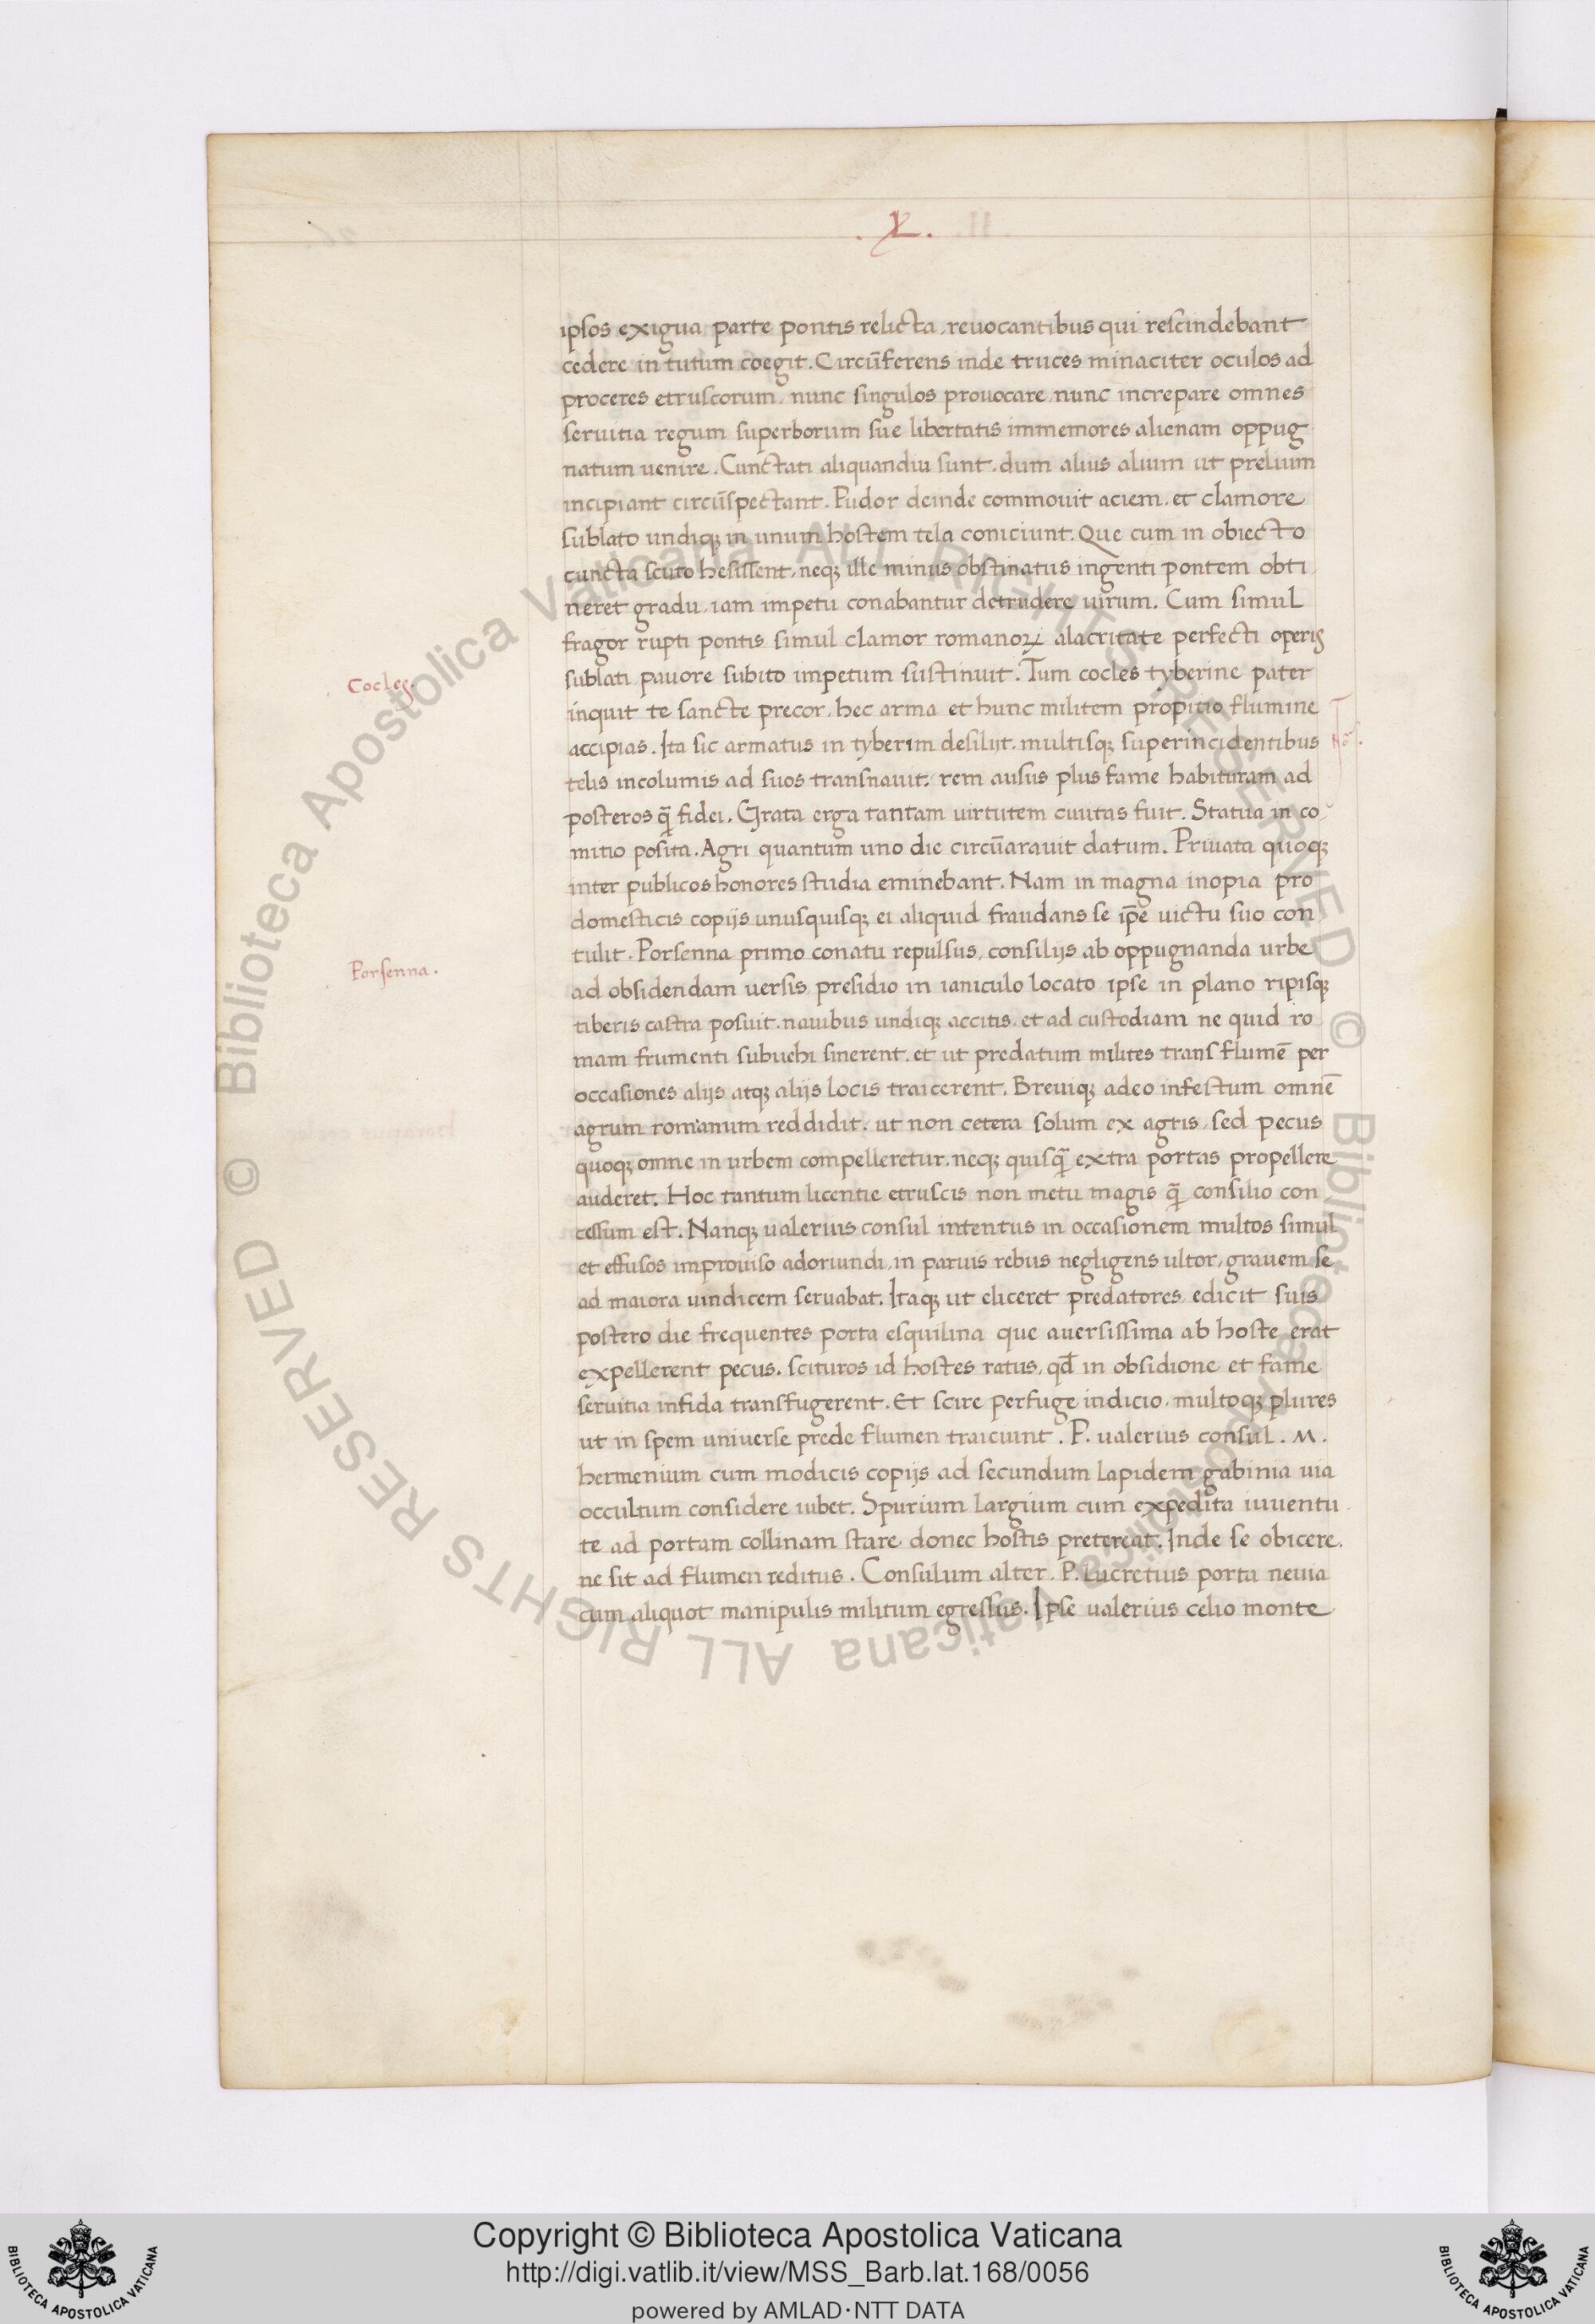 .L.
ipsos exigua parte pontis relicta, reuocantibus qui rescindebant
cedere in tutum coegit. Circu̅ferens inde truces minaciter oculos ad
proceres etruscorum, nunc singulos prouocare, nunc increpare omnes
seruitia regum superborum sue libertatis immemores alienam oppug
natum uenire. Cunctati aliquandiu sunt, dum alius alium ut prelium
incipiant circu̅spectant. Pudor deinde commouit aciem, et clamore
sublato undiqꝫ in unum hostem tela coniciunt. Que cum in obiecto
cuncta scuto hesissent, neqꝫ ille minus obstinatus ingenti pontem obti
neret gradu, iam impetu conabantur detrudere uirum. Cum simul
fragor rupti pontis simul clamor romanoꝝ alacritate perfecti operis
Cocles.
sublati pauore subito impetum sustinuit. Tum cocles tyberine pater
inquit te sancte precor, hec arma et hunc militem propitio flumine
accipias. Ita sic armatus in tyberim desilijt, multisqꝫ superincidentibus
telis incolumis ad suos transnauit, rem ausus plus fame habituram ad
posteros qᷓ fidei. Grata erga tantam uirtutem ciuitas fuit. Statua in co
mitio posita. Agri quantum uno die circu̅arauit datum. Priuata quoqꝫ
inter publicos honores studia eminebant. Nam in magna inopia pro
domesticis copijs unusquisqꝫ ei aliquid fraudans se ip̅e uictu suo con
Porsenna.
tulit. Porsenna primo conatu repulsus, consilijs ab oppugnanda urbe
ad obsidendam uersis, presidio in ianiculo locato ipse in plano ripisqꝫ
tiberis castra posuit, nauibus undiqꝫ accitis, et ad custodiam ne quid ro
mam frumenti subuehi sinerent, et ut predatum milites trans flume̅ per
occasiones alijs atqꝫ alijs locis traicerent. Breuiqꝫ adeo infestum omne̅
agrum romanum reddidit, ut non cetera solum ex agris, sed pecus
quoqꝫ omne in urbem compelleretur, neqꝫ quisqᷓ extra portas propellere
auderet. Hoc tantum licentie etruscis non metu magis qᷓ consilio con
cessum est. Nanqꝫ ualerius consul intentus in occasionem multos simul
et effusos improuiso adoriundi, in paruis rebus negligens ultor, grauem se
ad maiora uindicem seruabat. Itaqꝫ ut eliceret predatores edicit suis
postero die frequentes porta esquilina que auersissima ab hoste erat
expellerent pecus, scituros id hostes ratus, qd̅ in obsidione et fame
seruitia infida transfugerent. Et scire perfuge indicio, multoqꝫ plures
ut in spem uniuerse prede flumen traiciunt. P. ualerius consul. M.
hermenium cum modicis copijs ad secundum lapidem gabinia uia
occultum considere iubet. Spurium largium cum expedita iuuentu
te ad portam collinam stare donec hostis pretereat. Inde se obicere
ne sit ad flumen reditus. Consulum alter. P. Lucretius porta neuia
cum aliquot manipulis militum egressus. Ipse ualerius celio monte
© Biblioteca Apostolica Vaticana ALL RIGHTS RESERVED © Biblioteca Apostolica Vaticana ALL RIGHTS RESERVED
Copyright © Biblioteca Apostolica Vaticana
http://digi.vatlib.it/view/MSS_Barb.lat.168/0056
powered by AMLAD·NTT DATA
BIBLIOTECA APOSTOLICA VATICANA
BIBLIOTECA APOSTOLICA VATICANA